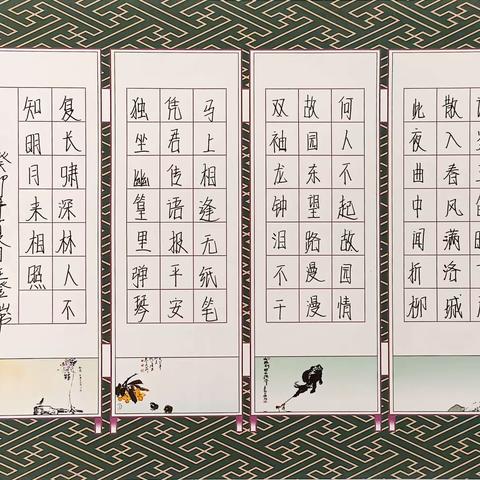 散入春风满洛城
此夜曲中闻折柳
何人不起故园情
故园东望路漫漫
双袖龙钟泪不干
马上相逢无纸笔
凭君传语报平安
独坐幽篁里弹琴
复长啸深林人不
知明月来相照
癸卯年